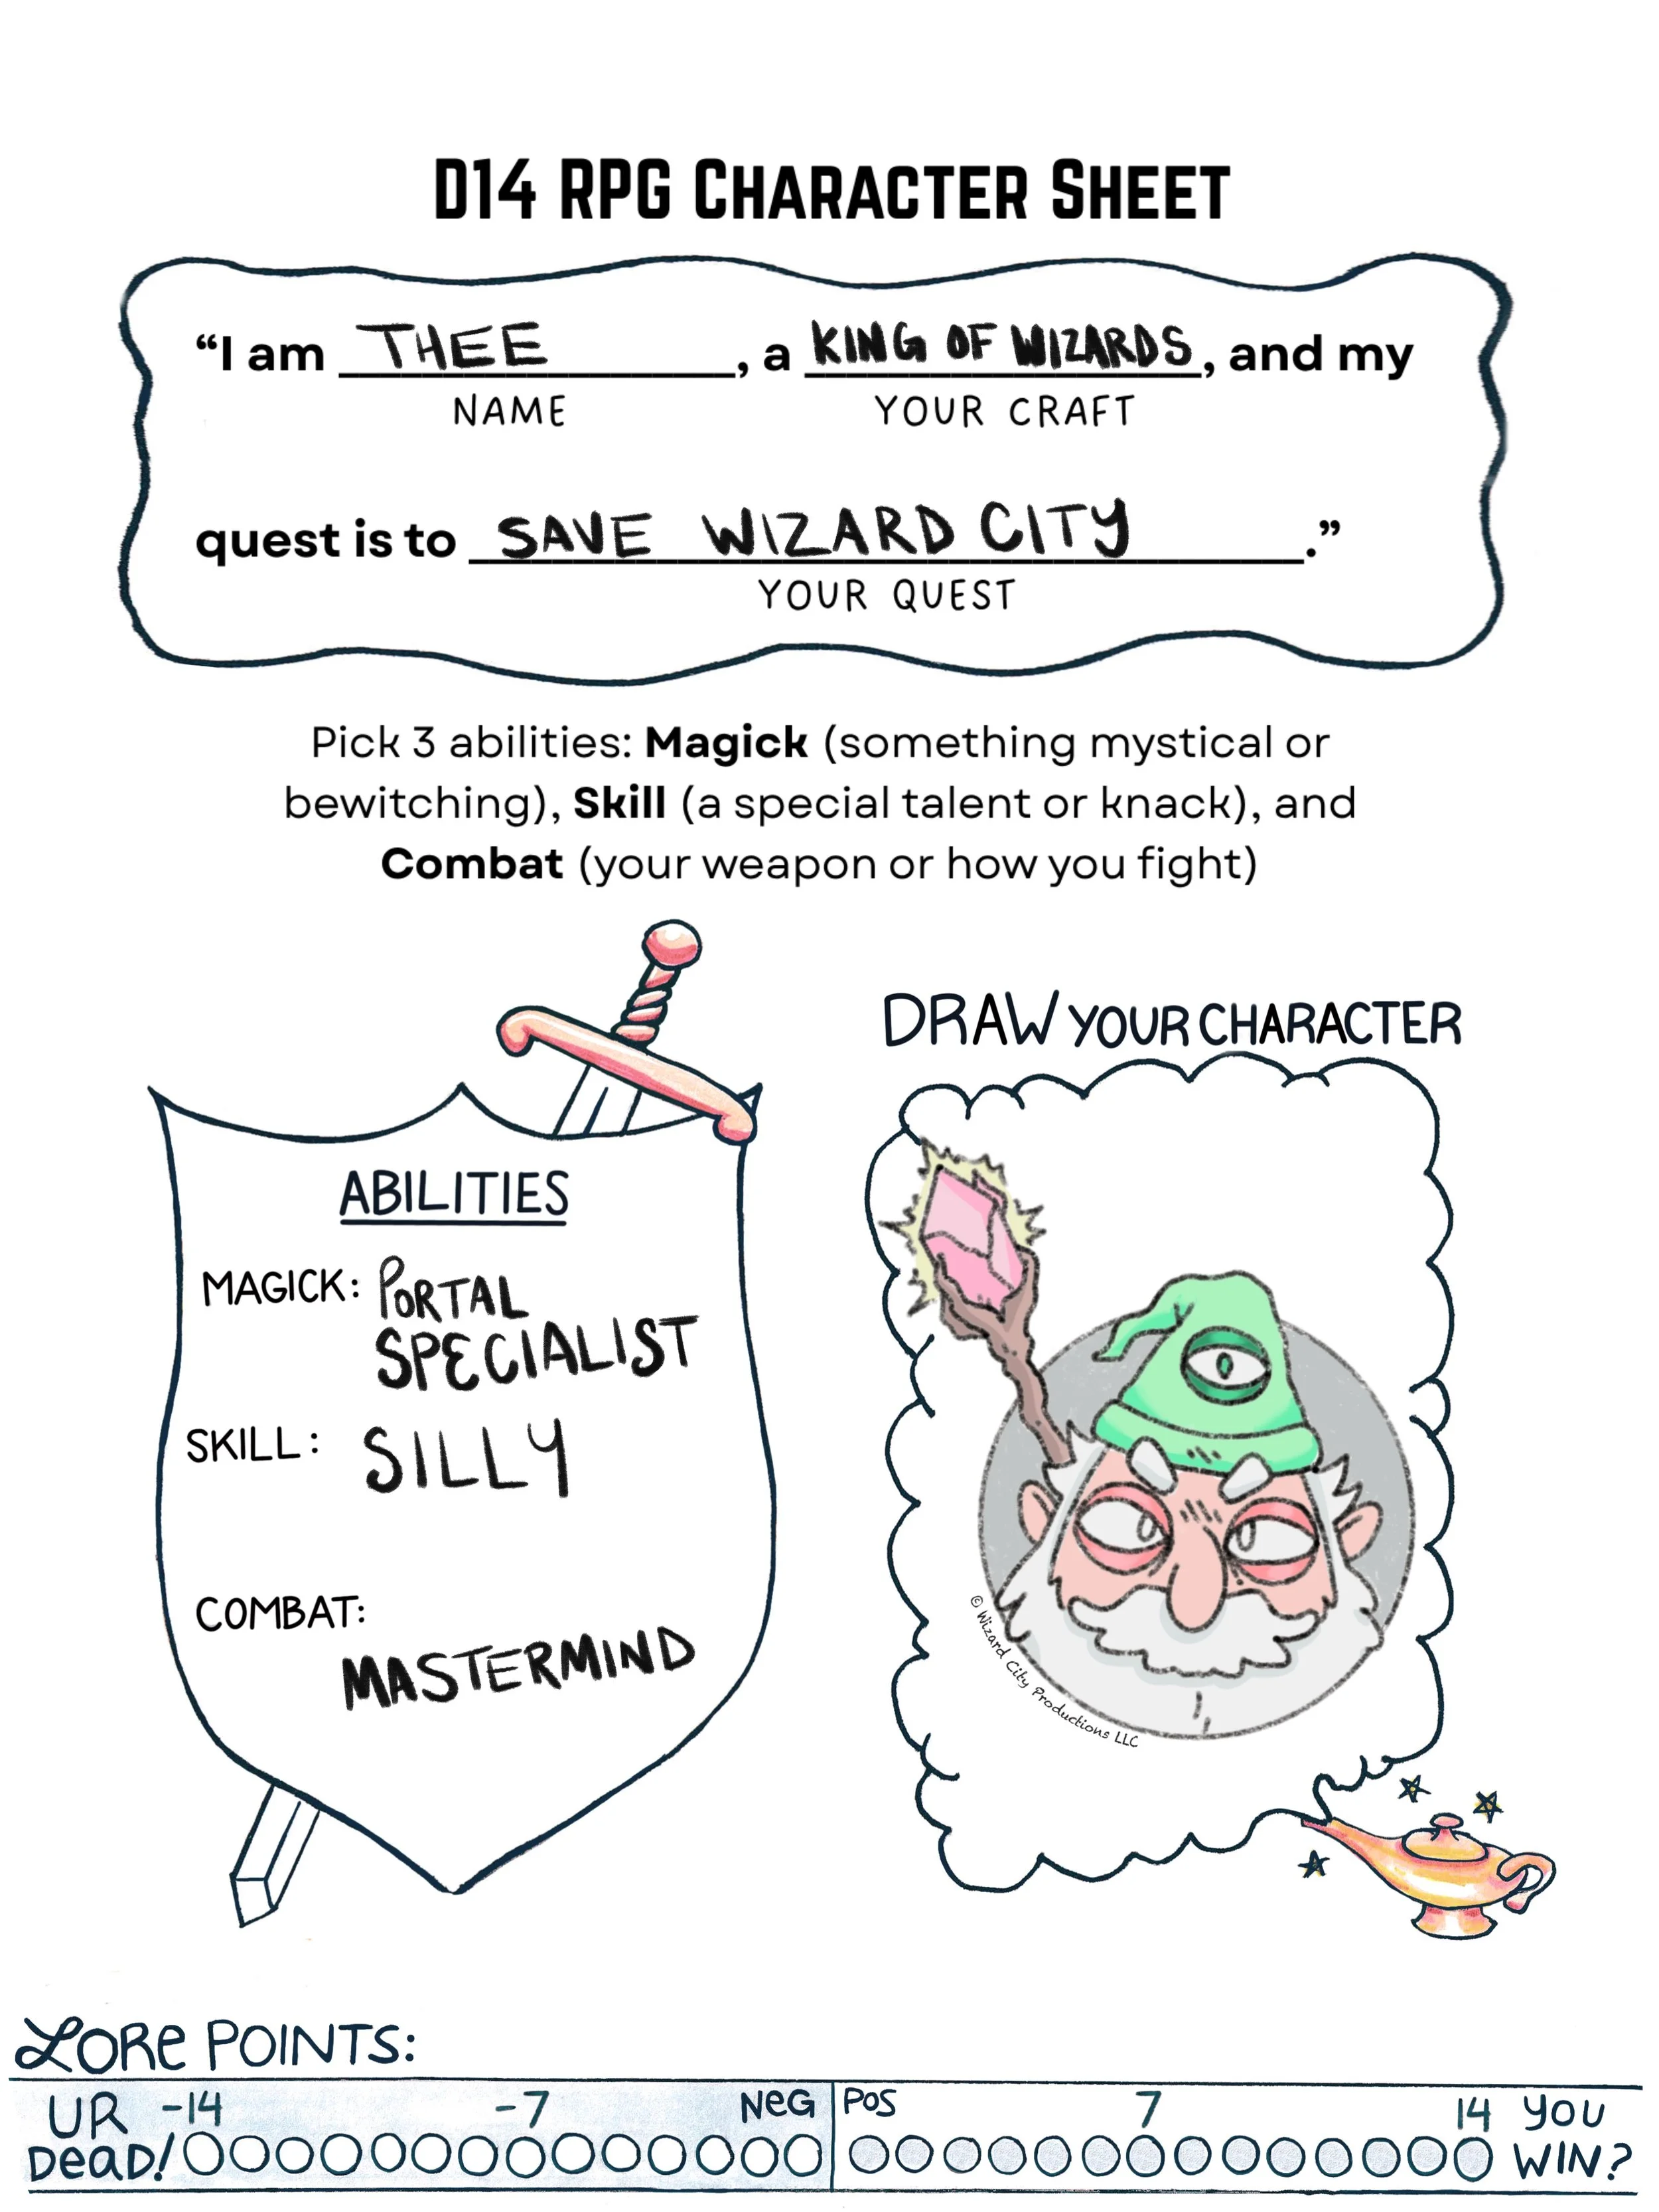 D14 RPG CHARACTER SHEET
“I am THEE, a KING OF WIZARDS, and my
NAME YOUR CRAFT
quest is to SAVE WIZARD CITY.”
YOUR QUEST
Pick 3 abilities: Magick (something mystical or
bewitching), Skill (a special talent or knack), and
Combat (your weapon or how you fight)
DRAW YOUR CHARACTER
ABILITIES
MAGICK: PORTAL
SPECIALIST
SKILL: SILLY
COMBAT:
MASTERMIND
© Wizard City Productions LLC
LORe POINTS:
UR -14 -7 NeG POS 7 14 YOU
DeaD! WIN?